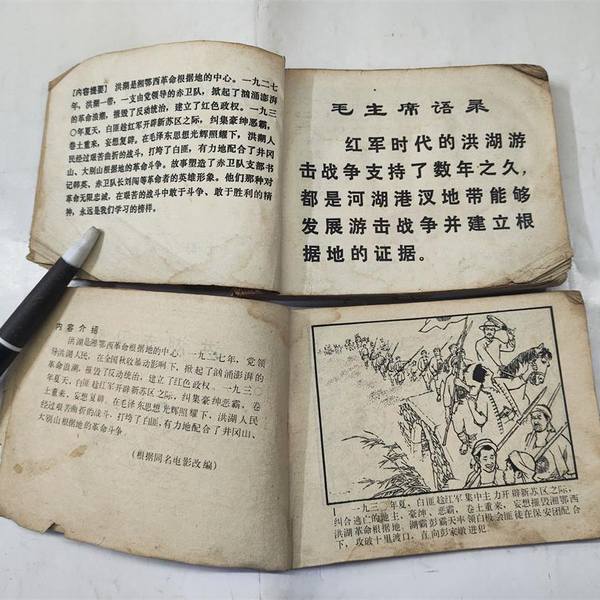 [内容提要] 洪湖是湘鄂西革命根据地的中心。一九二七
年，洪湖一带，一支由党领导的赤卫队，掀起了汹涌澎湃
的革命浪潮，摧毁了反动统治，建立了红色政权。一九三
〇年夏天，白匪趁红军开辟新苏区之际，纠集豪绅恶霸，
卷土重来，妄想复辟。在毛泽东思想光辉照耀下，洪湖人
民经过艰苦曲折的战斗，打垮了白匪，有力地配合了井冈
山、大别山根据地的革命斗争。故事塑造了赤卫队支部书
记韩英、赤卫队长刘闯等革命者的英雄形象。他们那种对
革命无限忠诚，在艰苦的战斗中敢于斗争、敢于胜利的精
神，永远是我们学习的榜样。
毛主席语录
红军时代的洪湖游
击战争支持了数年之久，
都是河湖港汊地带能够
发展游击战争并建立根
据地的证据。
内容介绍
洪湖是湘鄂西革命根据地的中心。一九二七年，党领
导洪湖人民，在全国秋收暴动影响下，掀起了汹涌澎湃的
革命浪潮，摧毁了反动统治，建立了红色政权。一九三〇
年夏天，白匪趁红军开辟新苏区之际，纠集豪绅恶霸，卷
土重来，妄想复辟。在毛泽东思想光辉照耀下，洪湖人民
经过艰苦曲折的战斗，打垮了白匪，有力地配合了井冈山、
大别山根据地的革命斗争
(根据同名电影改编)
一九三〇年夏，白匪趁红军集中主力开辟新苏区之际，
纠合逃亡的地主、豪绅、恶霸，卷土重来，妄想摧毁湘鄂西
洪湖革命根据地。湖霸彭霸天率领白极会匪徒在保安团配合
下，攻破十里渡口，直向彭家墩进犯